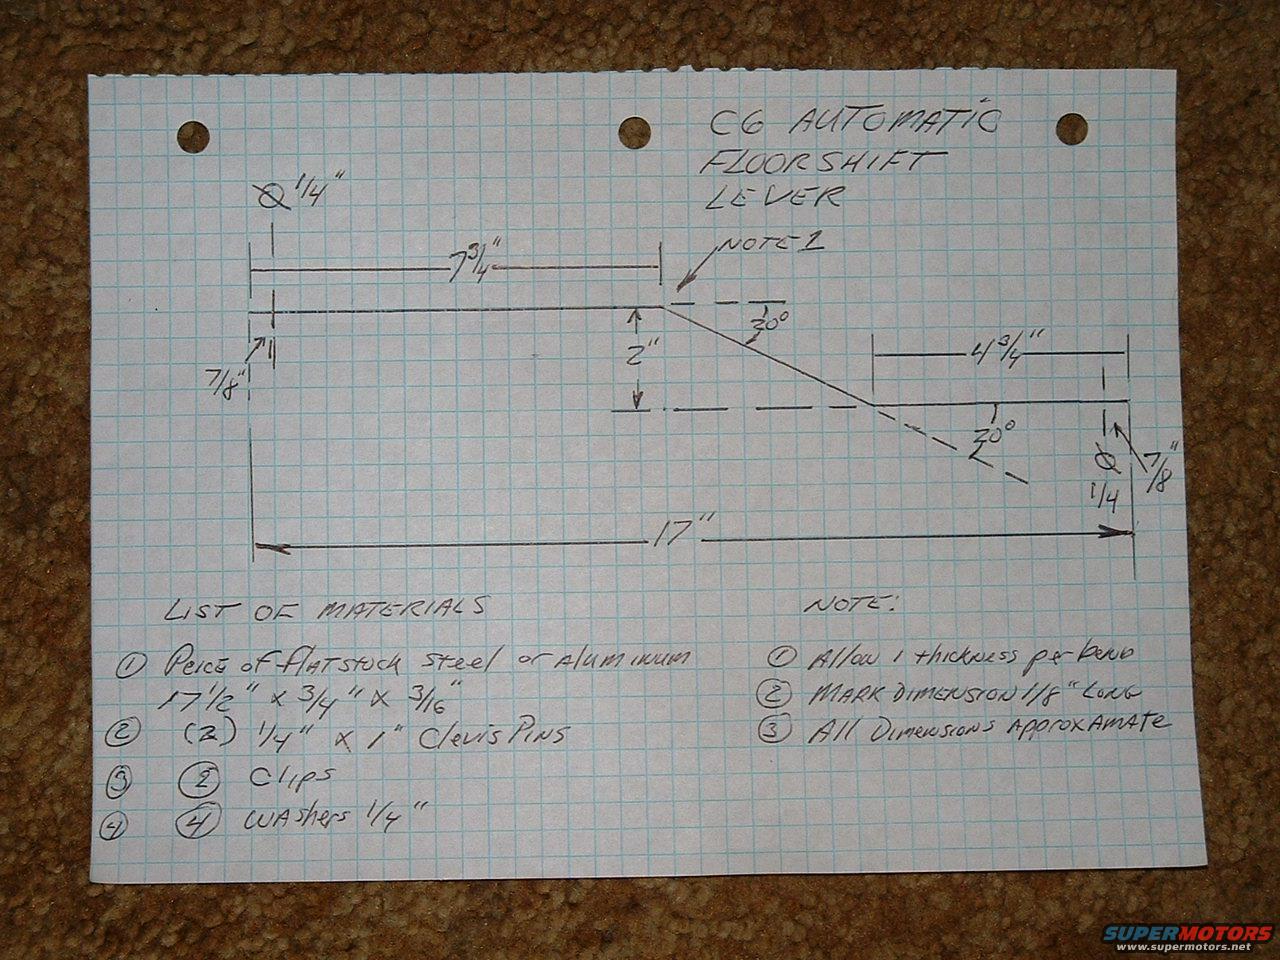 C6 AUTOMATIC
FLOORSHIFT
LEVER
Ø 1/4"
NOTE 1
7 3/4"
20°
2"
4 3/4"
7/8"
20°
Ø 1/4
7/8"
17"
LIST OF MATERIALS
① Peice of flatstock steel or aluminum
17 1/2" x 3/4" x 3/16"
② (2) 1/4" x 1" Clevis Pins
③ ② Clips
④ ④ washers 1/4"
NOTE:
① Allow 1 thickness per bend
② MARK DIMENSION 1/8" LONG
③ All Dimensions Approxamate
SUPERMOTORS
www.supermotors.net